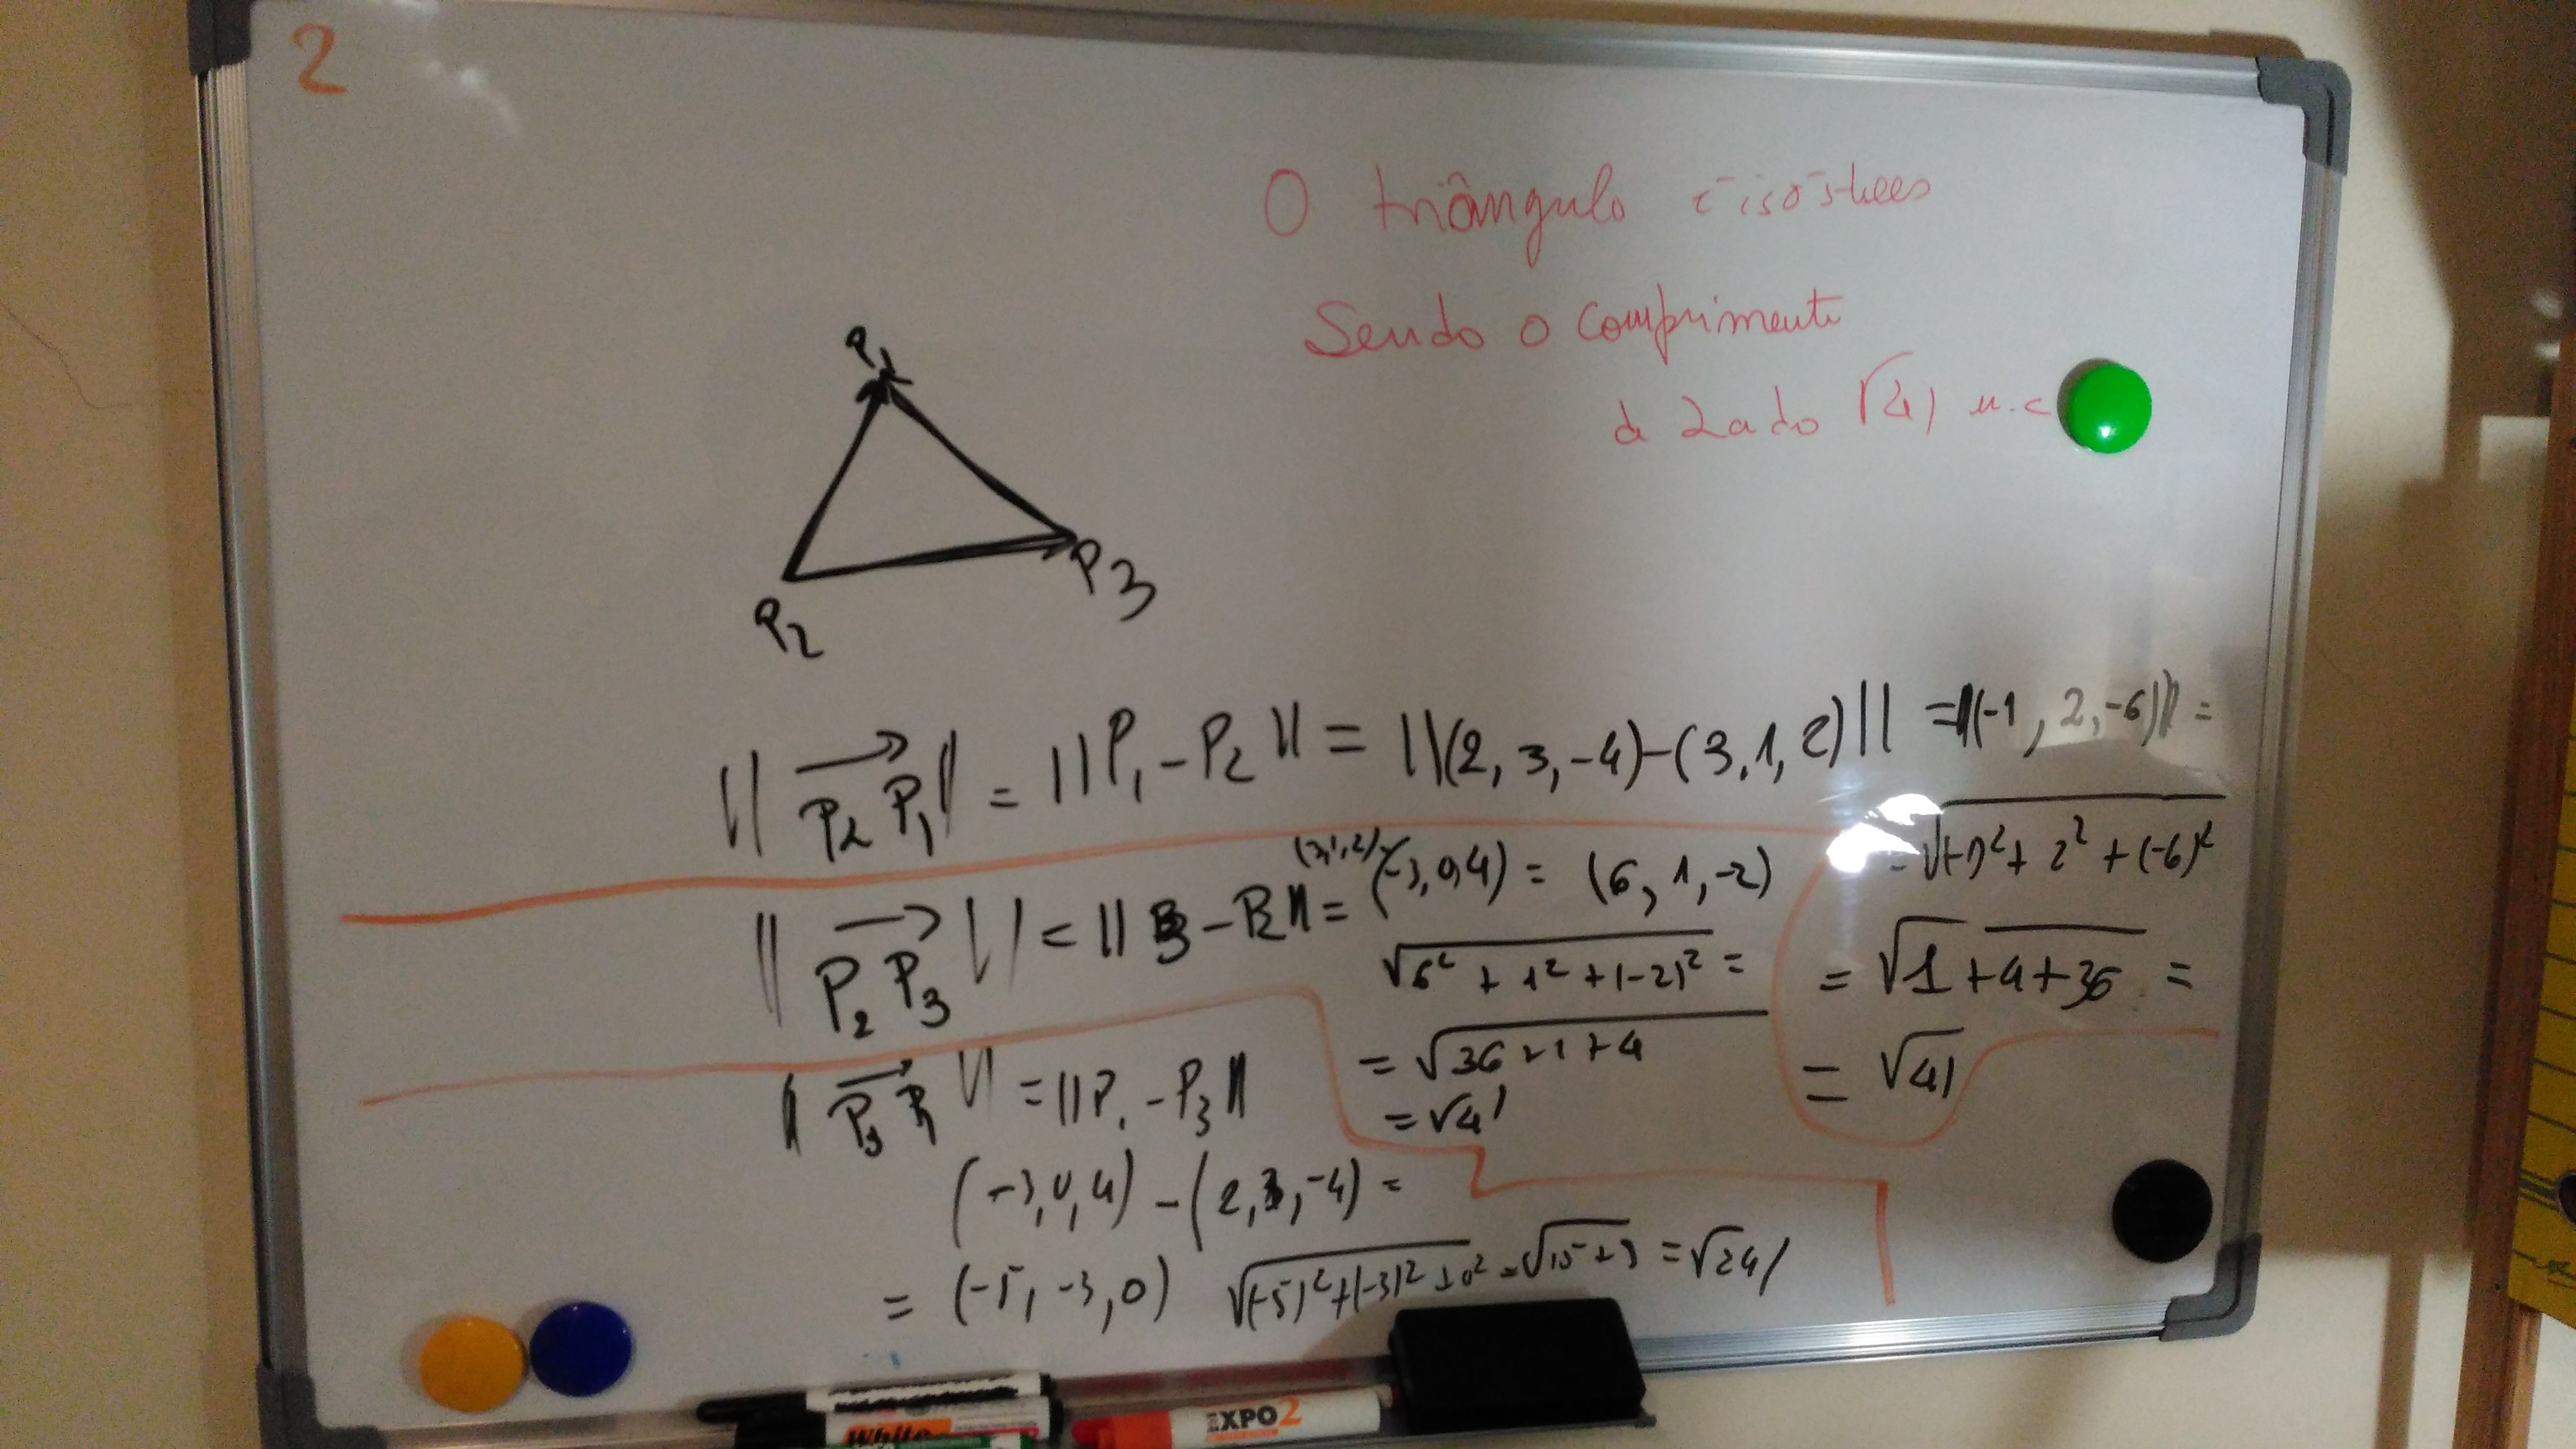 2
O triângulo é isósteles
Sendo o comprimento
de lado √41 u.c
P1
P3
P2
||P2P1|| = ||P1-P2|| = ||(2, 3, -4)-(3, 1, 2)|| = ||(-1, 2, -6)|| =
= √(-1)² + 2² + (-6)²
= √1 + 4 + 36 =
= √41
||P2P3|| = ||P3 - P2|| = (3,1,2) - (-3, 0, 4) = (6, 1, -2)
√6² + 1² + (-2)² =
= √36 + 1 + 4
= √41
||P3P1|| = ||P1 - P3||
(-3, 0, 4) - (2, 3, -4) =
= (-5, -3, 0) √(-5)² + (-3)² + 0² = √15 + 9 = √24
White
EXPO 2